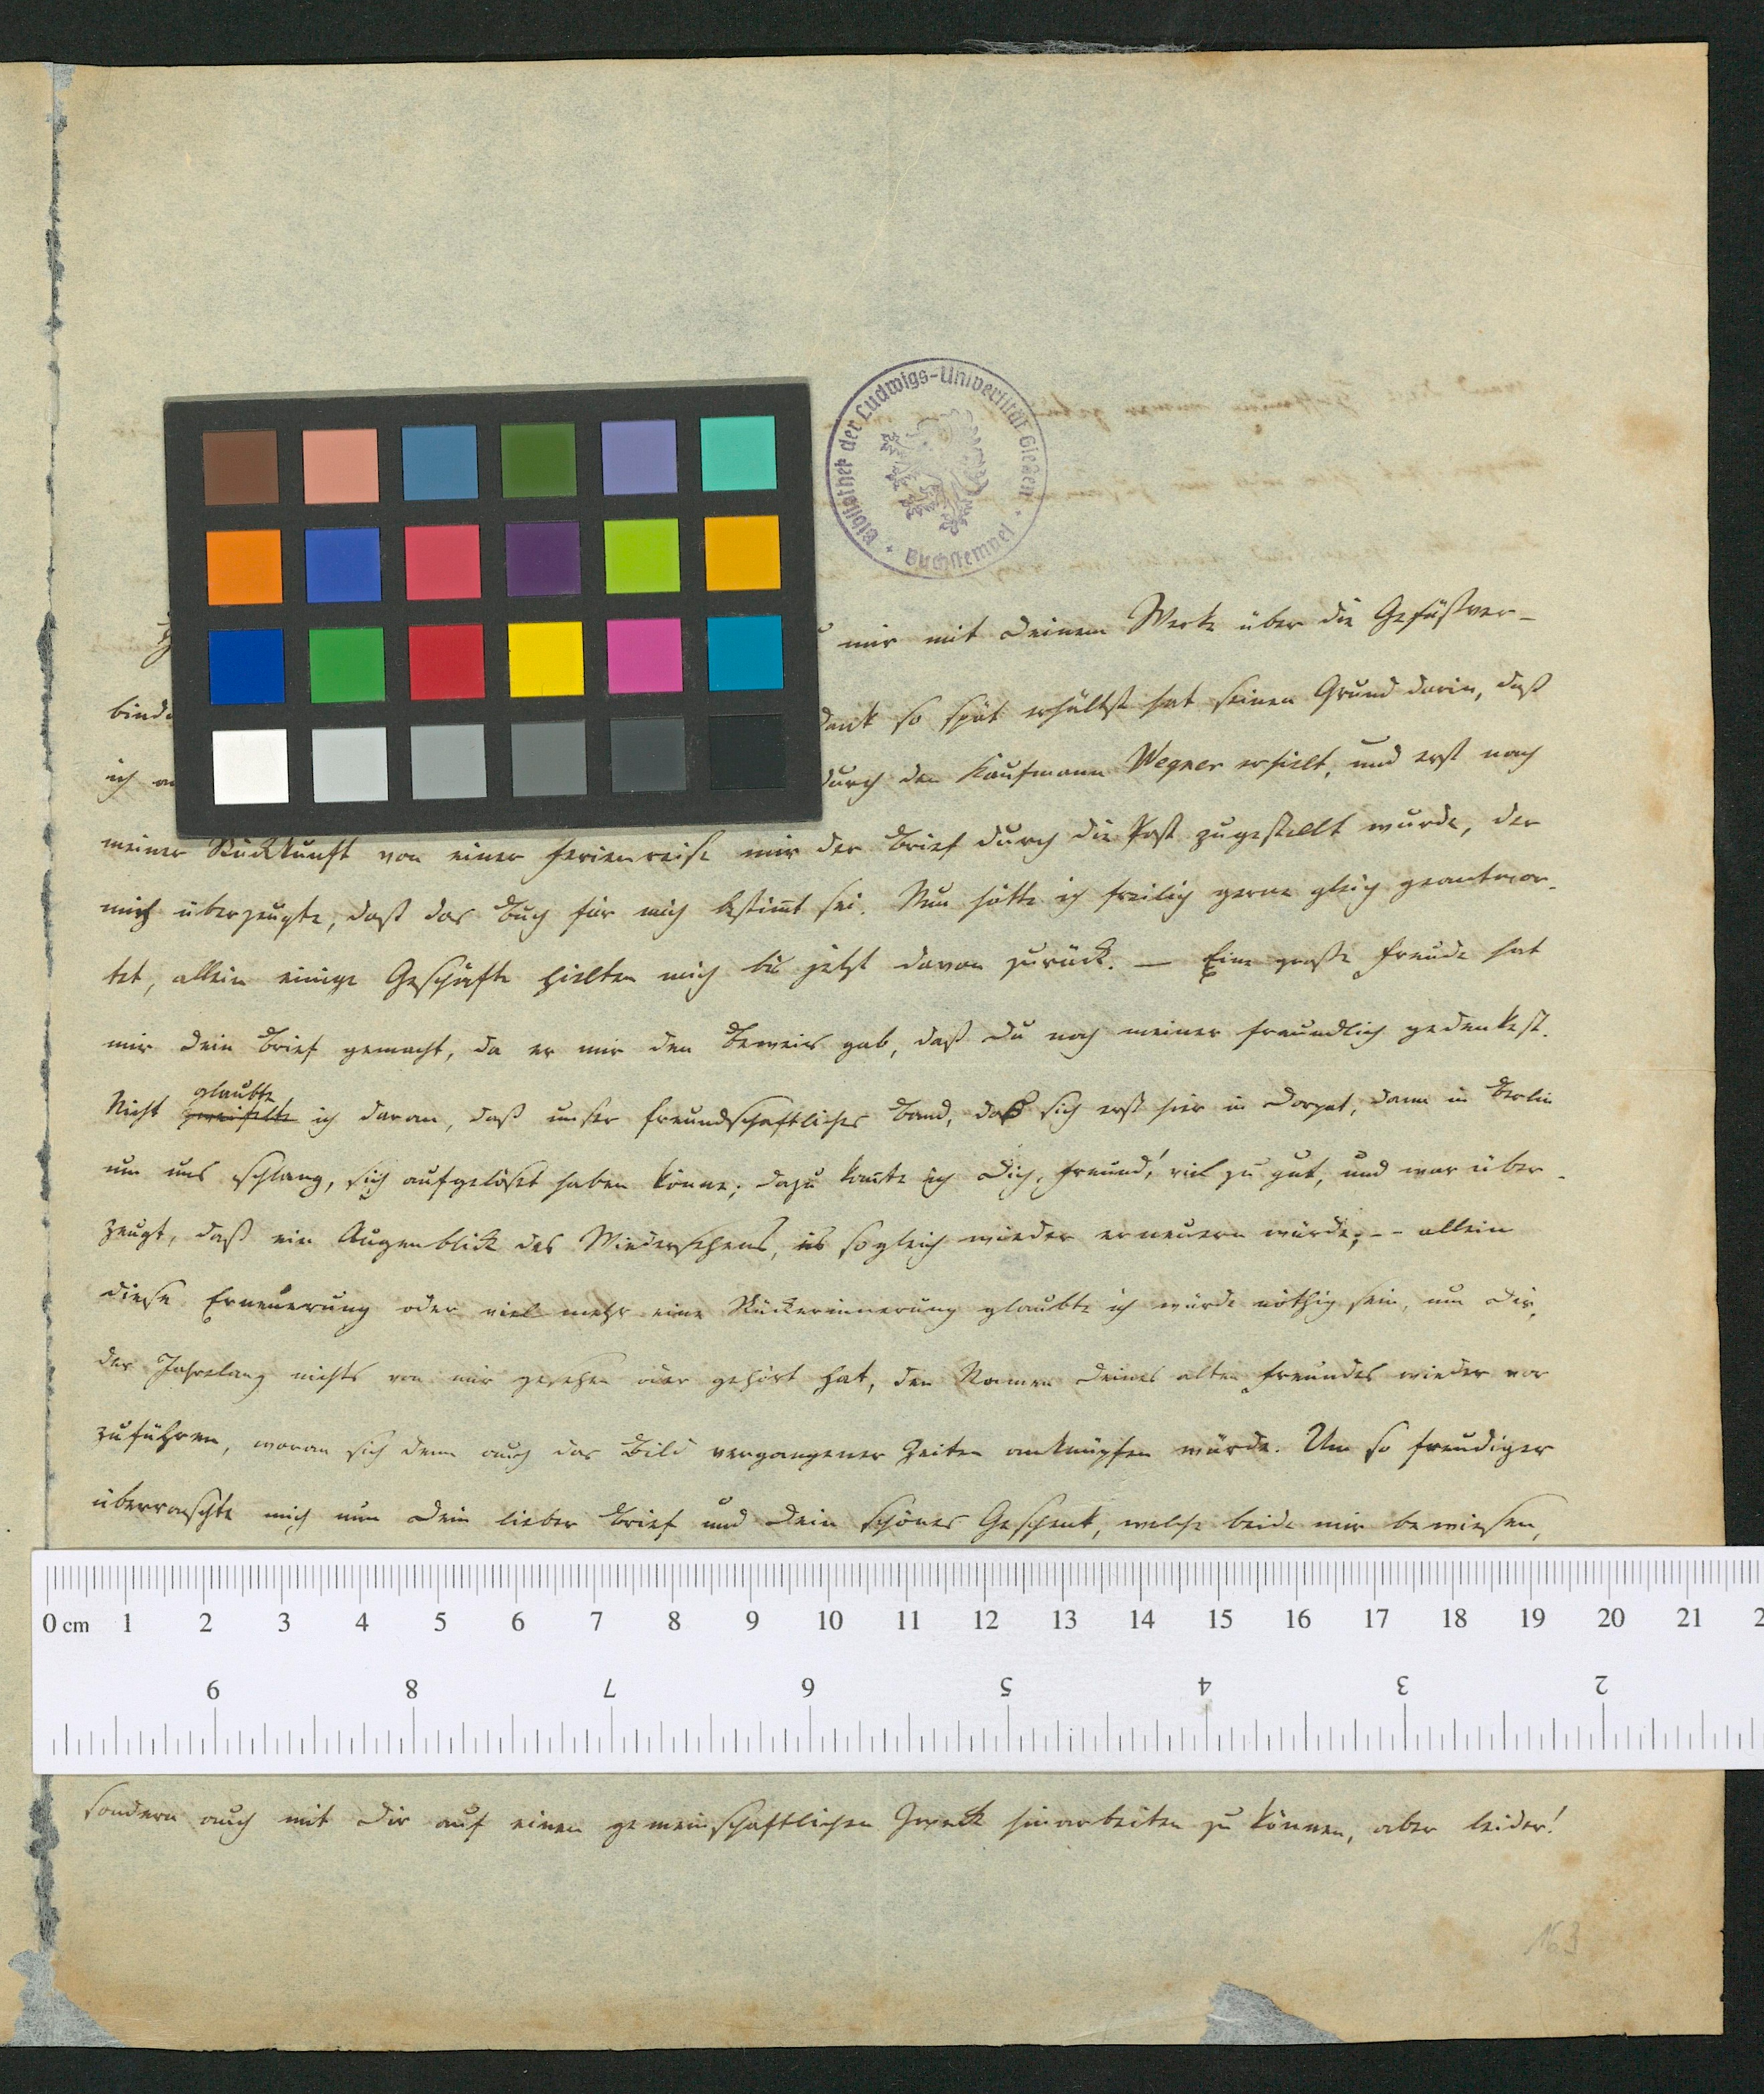 Bibliothek der Ludwigs-Universität Gießen · Buchstempel ·
mir mit Deinem Werke über die Gefäßver-
bind
Dank so spät erhältst hat seinen Grund darin, daß
ich
durch den Kaufmann Wegner erhielt, und erst nach
meiner Rückkunft von einer Ferienreise mir der Brief durch die Post zugestellt wurde, der
mich überzeugte, daß das Buch für mich bestimt sei. Nun hätte ich freilich gerne gleich geantwor-
tet, allein einige Geschäfte hielten mich bis jetzt davon zurück. — Eine große Freude hat
mir Dein Brief gemacht, da er mir den Beweis gab, daß Du noch meiner freundlich gedenkest.
Nicht glaubte zweifelte ich daran, daß unser freundschaftliches Band, das sich erst hier in Dorpat, dann in Berlin
um uns schlang, sich aufgelöst haben könne; dazu kante ich Dich, Freund! viel zu gut, und war über-
zeugt, daß ein Augenblick des Wiedersehens, es sogleich wieder erneuern würde; -- allein
diese Erneuerung oder viel mehr eine Rückerinnerung glaubte ich würde nöthig sein, um Dir,
der Jahrelang nichts von mir gesehen oder gehört hat, den Namen Deines alten Freundes wieder vor
zuführen, woran sich denn auch das Bild vergangener Zeiten anknüpfen würde. Um so freudiger
überraschte mich nun Dein lieber Brief und Dein schönes Geschenk, welche beide mir bewiesen,
0 cm 1 2 3 4 5 6 7 8 9 10 11 12 13 14 15 16 17 18 19 20 21 2
9 8 7 6 5 4 3 2
sondern auch mit Dir auf einen gemeinschaftlichen Zweck hinarbeiten zu können, aber leider!
163